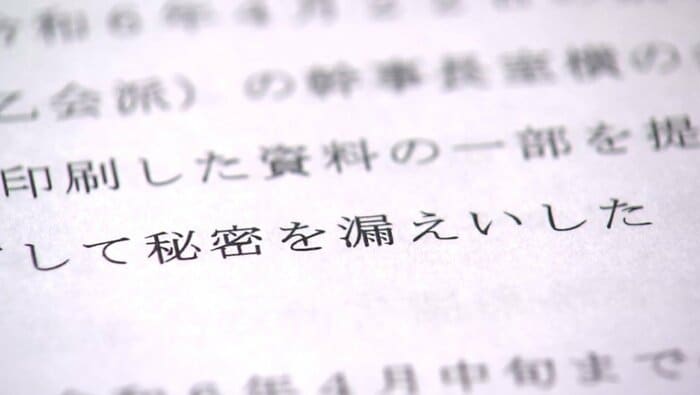 令和6年4月22日の
乙会派）の幹事長室横の
印刷した資料の一部を提
して秘密を漏えいした
令和6年4月中旬まで